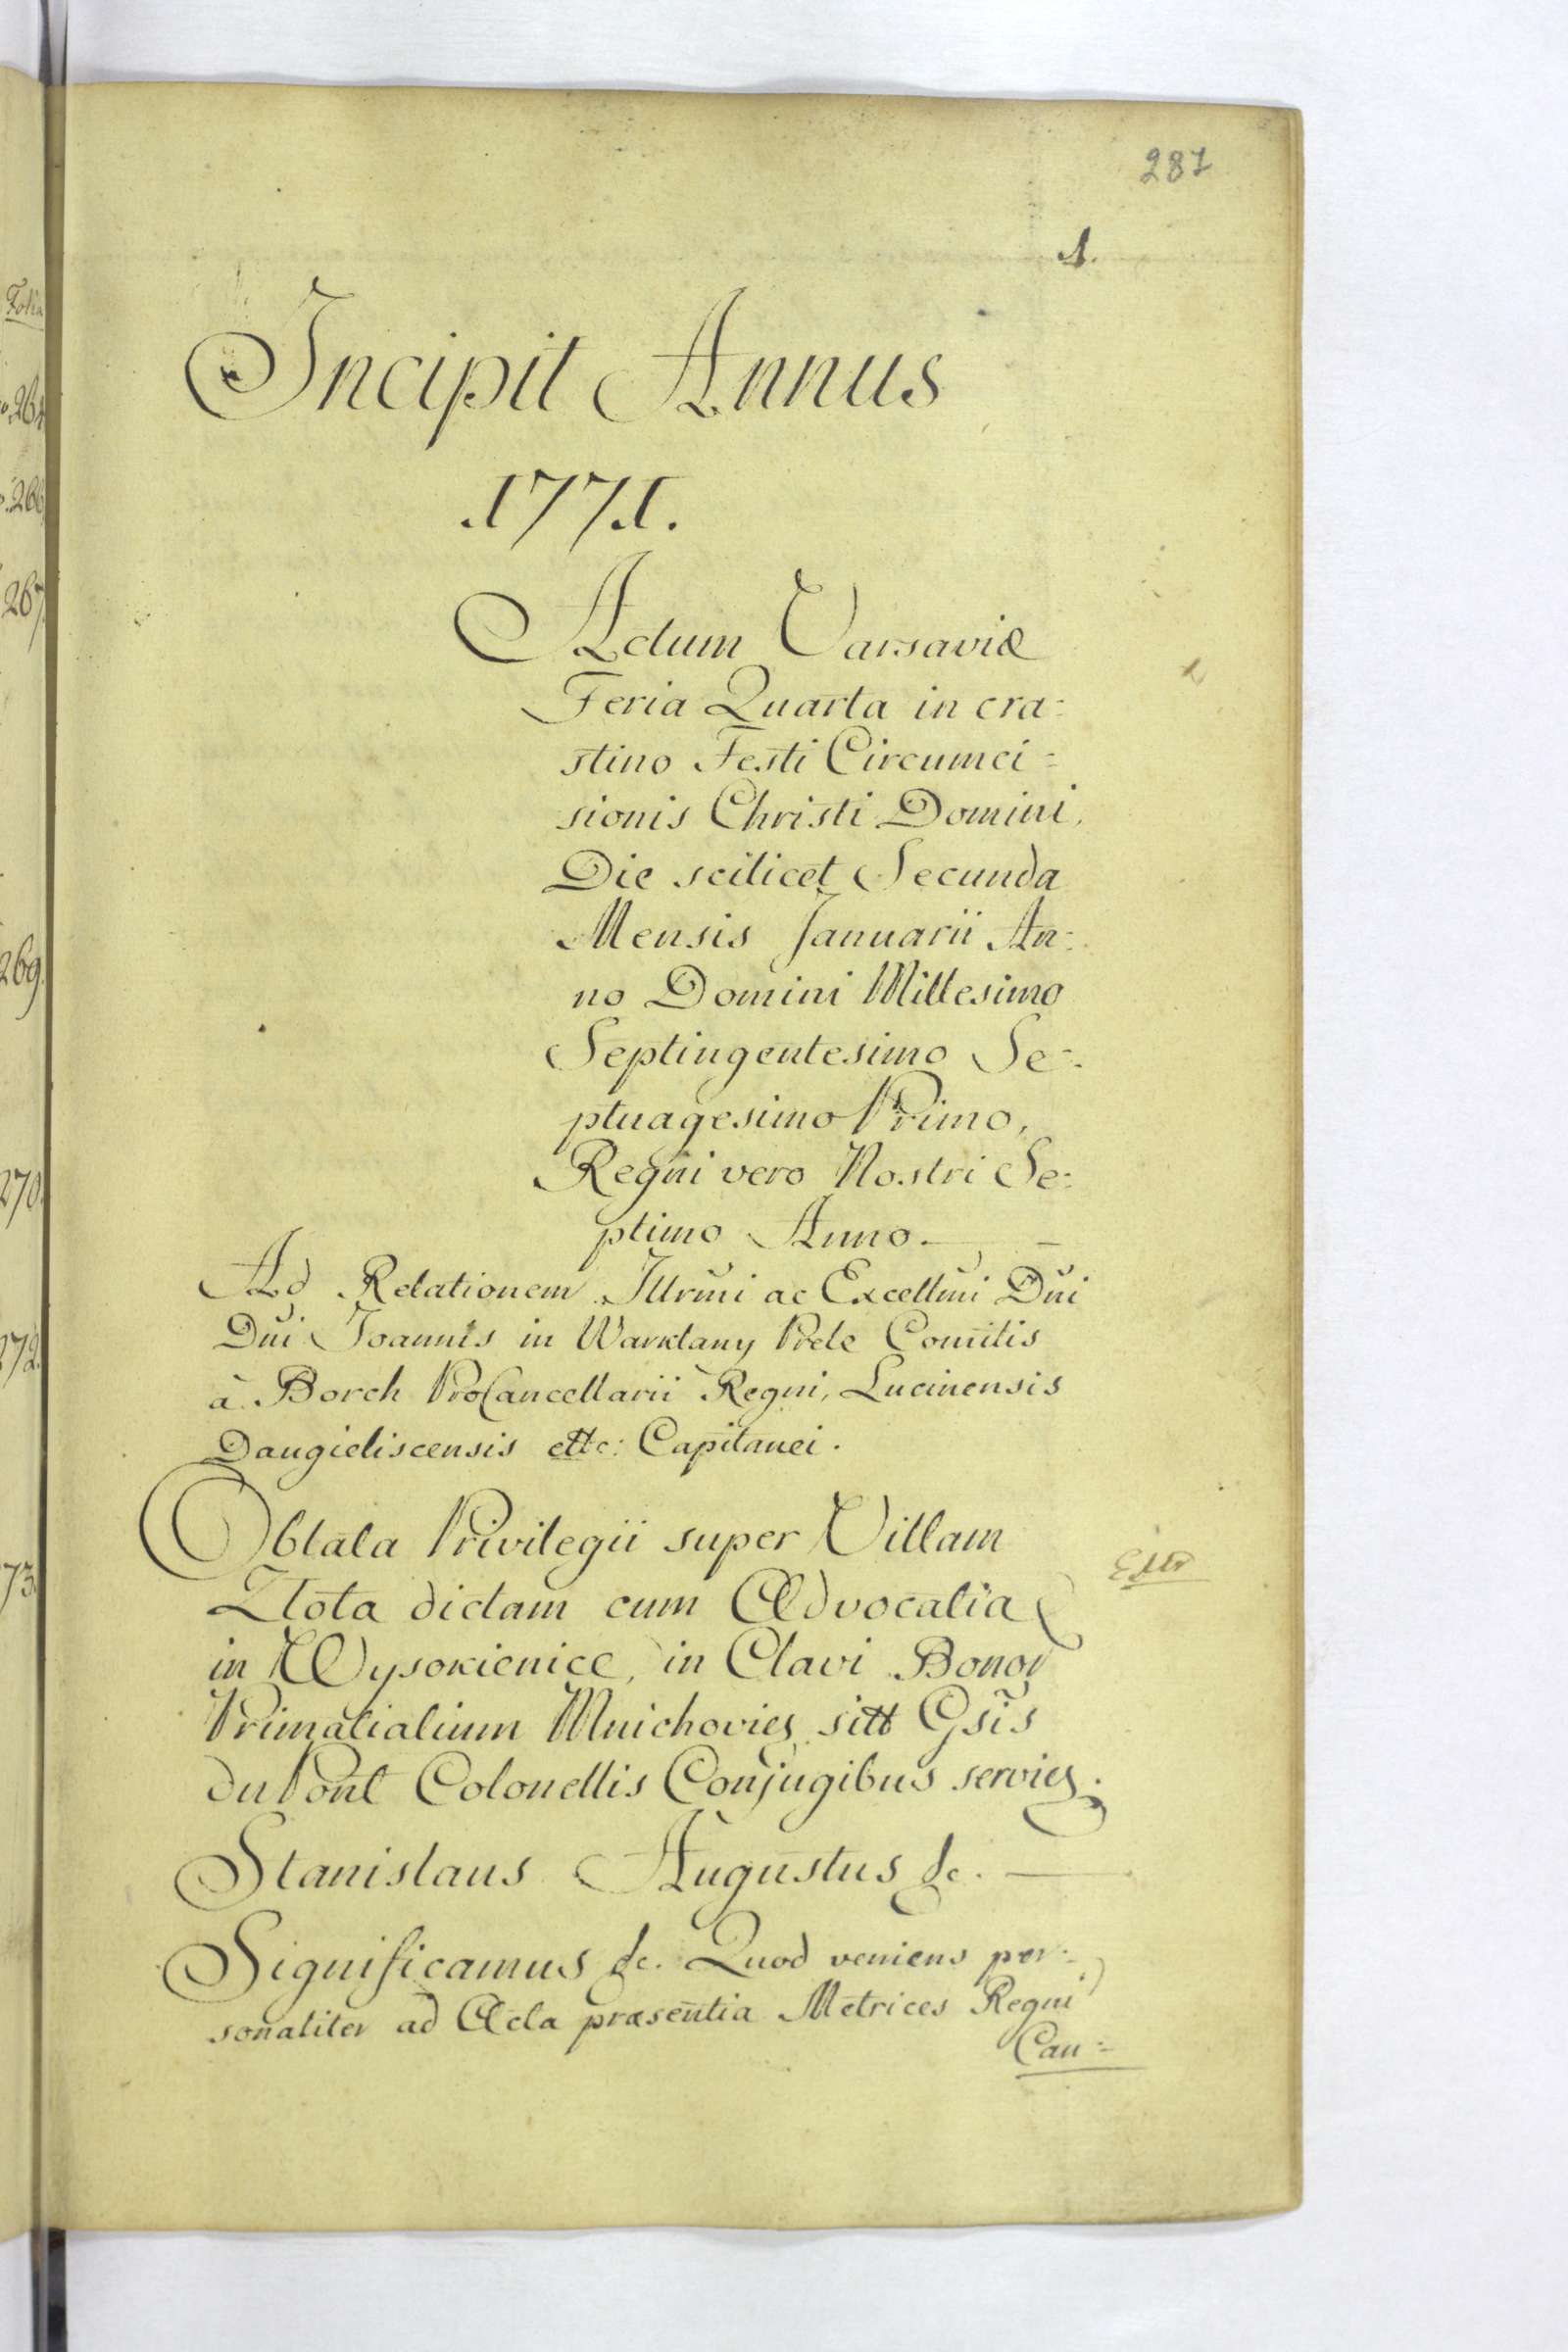 287
1.
Incipit Annus
1771.
Actum Varsaviæ
Feria Quarta in cra=
stino Festi Circumci=
sionis Christi Domini,
Die scilicet Secunda
Mensis Januarii An=
no Domini Millesimo
Septingentesimo Se=
ptuagesimo Primo,
Regni vero Nostri Se=
ptimo Anno. — –
Ad Relationem Illrmi ac Excellmi Dni
Dni Joannis in Warklany Prele Comitis
à Borch ProCancellarii Regni, Lucinensis
Daugieliscensis ettc: Capitanei.
Oblata Privilegii super Villam
Złota dictam cum Advocatia
in Wysokienice, in Clavi Bonor
Primatialium Mnichovien sitt Gsis
du Pont Colonellis Conjugibus servien.
Stanislaus Augustus &c. —
Significamus &c. Quod veniens per=
sonaliter ad Acta præsentia Metrices Regni
Can=
Folia
264
266
267
269.
270.
272.
73.